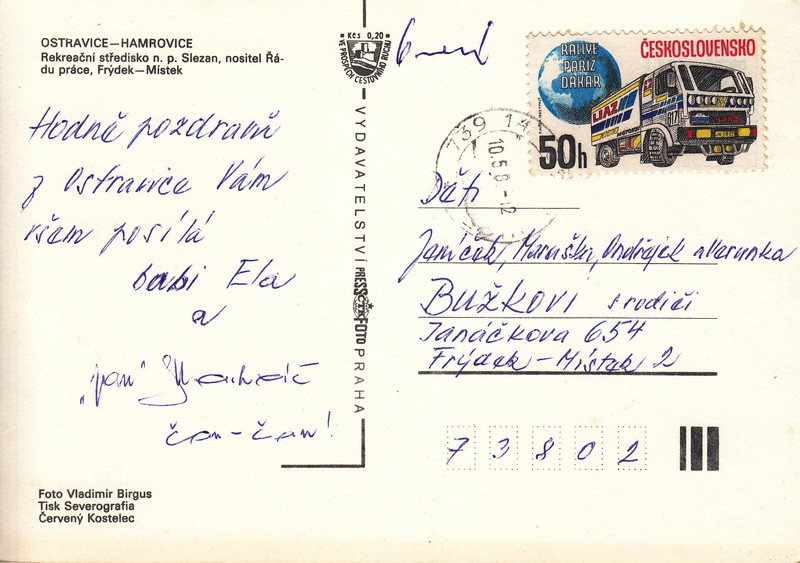 OSTRAVICE—HAMROVICE
Rekreační středisko n. p. Slezan, nositel Řá-
du práce, Frýdek—Místek
Hodně pozdravů
z Ostravice Vám
všem posílá
babi Ela
a
„pan"
čau-čau!
Foto Vladimír Birgus
Tisk Severografia
Červený Kostelec
Kčs 0,20
VE PROSPĚCH CESTOVNÍHO RUCHU
VYDAVATELSTVÍ PRESSFOTO PRAHA
ČTK
RALLYE
PAŘÍŽ
DAKAR
ČESKOSLOVENSKO
LIAZ
50h
739 14
10.5.8 -12
Děti
Janíček, Maruška, Ondřejek a Verunka
BUŽKOVI s rodiči
Janáčkova 654
Frýdek-Místek 2
7 3 8 0 2